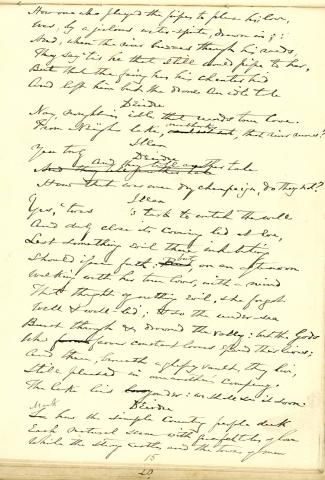 How one who played the pipes to please his love,
Was, by a jealous water-sprite, drawn in;
And, when the wind breathes through his reeds,
They say 'tis he that still would pipe to her,
But that the fairy has his chanter hid
And left him but the drone. An idle tale
Deirdre
Nay, naught is idle that reminds true love.
From a lake, that river runs?
Ilean
Yea truly
Deirdre
And they tell another tale
How that was once dry champaign, do they not?
Ilean
Yes, 'twas 's task to watch the well
And duly close its covering lid at eve,
Lest something evil there inhabiting
Should issue forth. But, on an afternoon
Walking with her true love, with a mind
That thought of nothing evil, she forgot
Well & well-lid; & so the under-sea
Burst through & drowned the valley: but the Gods
Who favour constant lovers spared their lives;
And there, beneath a glassy vault, they live,
Still pleased in one another's company.
The lake lies yonder: we shall see it soon.
Deirdre
Mark
how the simple country people deck
Each natural scene with graceful tales of love
While the strong castles and the towers of men
15